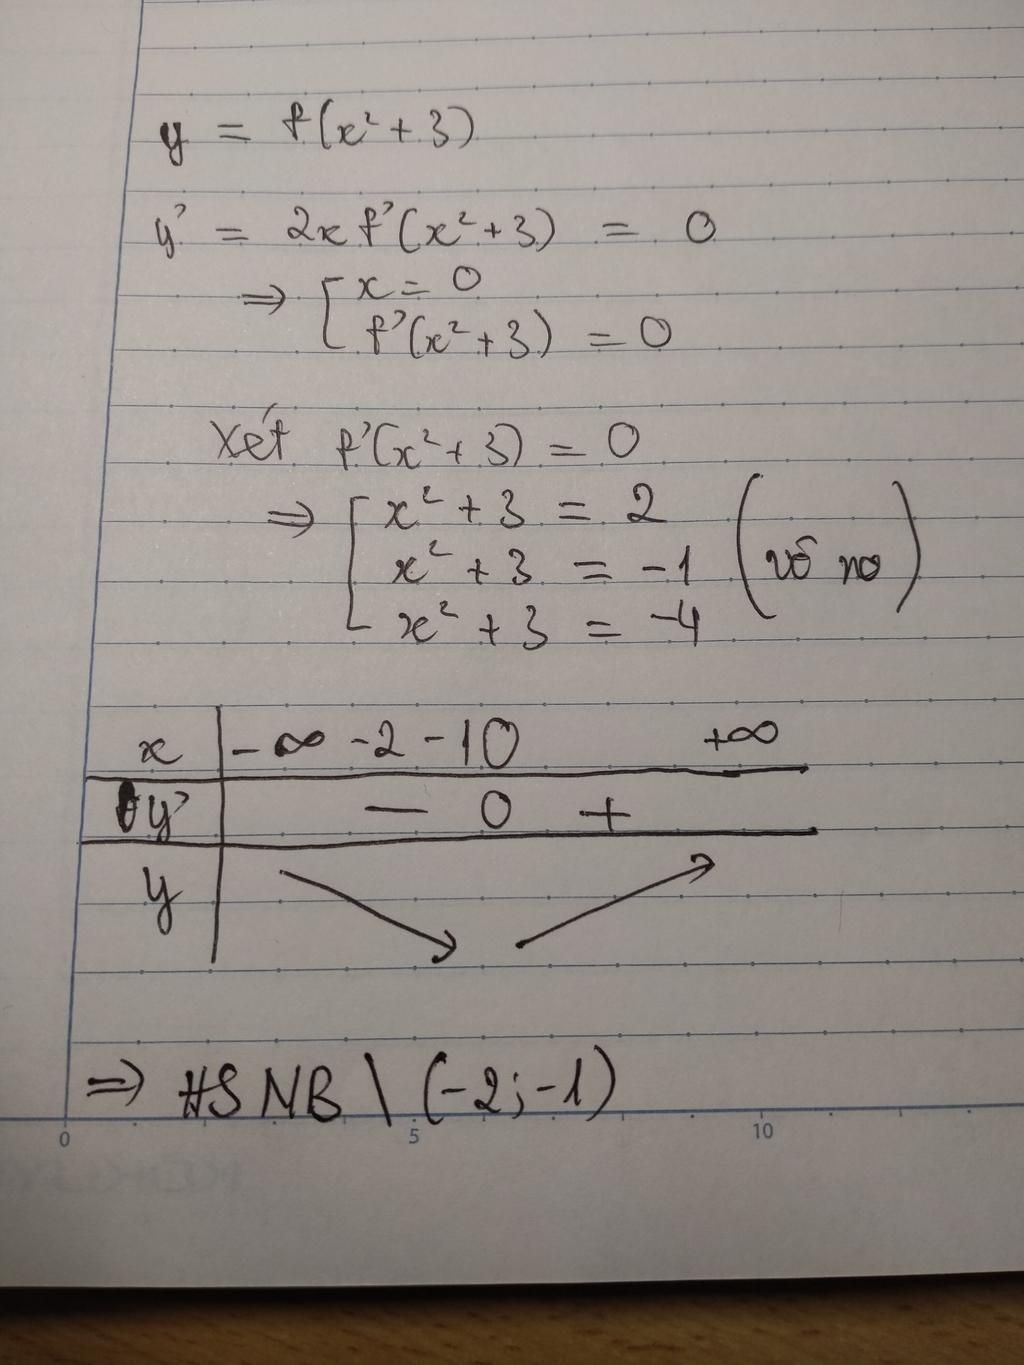 y = f(x² + 3)
y' = 2x f'(x² + 3) = 0
⇒ [ x = 0
f'(x² + 3) = 0
Xét f'(x² + 3) = 0
⇒ [ x² + 3 = 2
x² + 3 = -1 (vô no)
x² + 3 = -4
x | -∞ -2 -1 0 +∞
y' | - 0 +
y | ↘ ↗
⇒ HSNB \ (-2; -1)
0 5 10